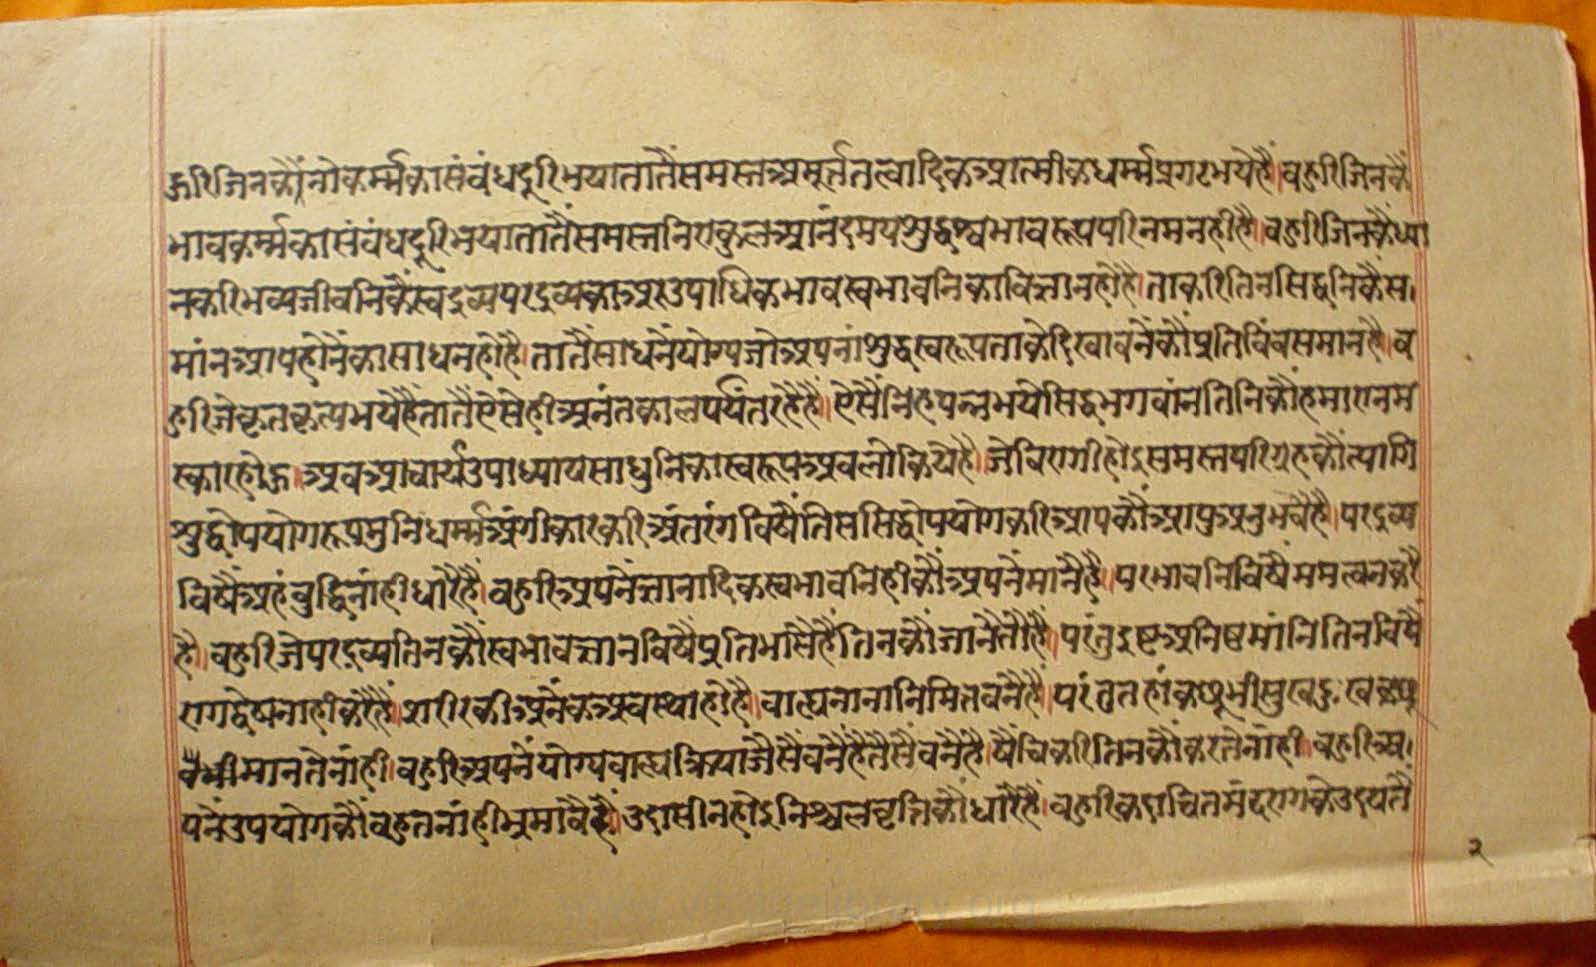 हुरि जिनकौं नोकर्म्मका संबंध दूरि भया तातैं समस्त अमूर्त्तत्वादिक आत्मीक धर्म्म प्रगट भये हैं। बहुरि जिनकैं
भावकर्म्मका संबंध दूरि भया तातैं समस्त निराकुल आनंदमय शुद्ध स्वभावरूप परिनमन हो है। बहुरि जिनकैं ध्या
नकरि भव्य जीवनिकैं स्वद्रव्य परद्रव्यका अर उपाधिक भाव स्वभावनिका विज्ञान हो है। ताकरि तिन सिद्धनिकैं स
मांन आप होनैंका साधन हो है। तातैं साधनैं योग्य जो अपनां शुद्ध स्वरूप ताके दिखावनैंकौं प्रतिबिंब समान हैं। ब
हुरि जे कृतकृत्य भये हैं तातैं ऐसे ही अनंत काल पर्यंत रहै हैं। ऐसैं निरूपन्न भये सिद्ध भगवांन तिनिकौं हमारा नम
स्कार होहु। अब आचार्य उपाध्याय साधुनिका स्वरूप अवलोकिये है। जे विरागी होइ समस्त परिग्रहकौं त्यागि
शुद्धोपयोगरूप मुनिधर्म्म अंगीकार करि अंतरंगविषैं तिस सिद्धोपयोगकरि आपकौं आप अनुभवै हैं। परद्रव्य
विषैं अहंबुद्धि नांही धारै हैं। बहुरि अपने ज्ञानादिक स्वभावनिहीकौं अपनैं मानै हैं। परभावनिविषैं ममत्व न करै
हैं। बहुरि जे परद्रव्य तिनकौं स्वभाव ज्ञानविषैं प्रतिभासै हैं तिनकौं जानै तौ हैं। परंतु इष्ट अनिष्ट मांनि तिनविषैं
रागद्वेष नाही करै हैं। शरीरकी अनेक अवस्था हो है। वाह्य नाना निमित्त बनै है। परंतु तहां कछू भी सुख दुःख
भी मानते नांही। बहुरि अपनें योग्य बाह्य क्रिया जैसैं बनै है तैसैं बनै है। षैंचिकरि तिनकौं करते नांही। बहुरि अ
पनें उपयोगकौं बहुत नांही भ्रमावै हैं। उदासीन होइ निश्चल वृत्तिकौं धारै हैं। बहुरि कदाचित मंदरागके उदयतैं
२